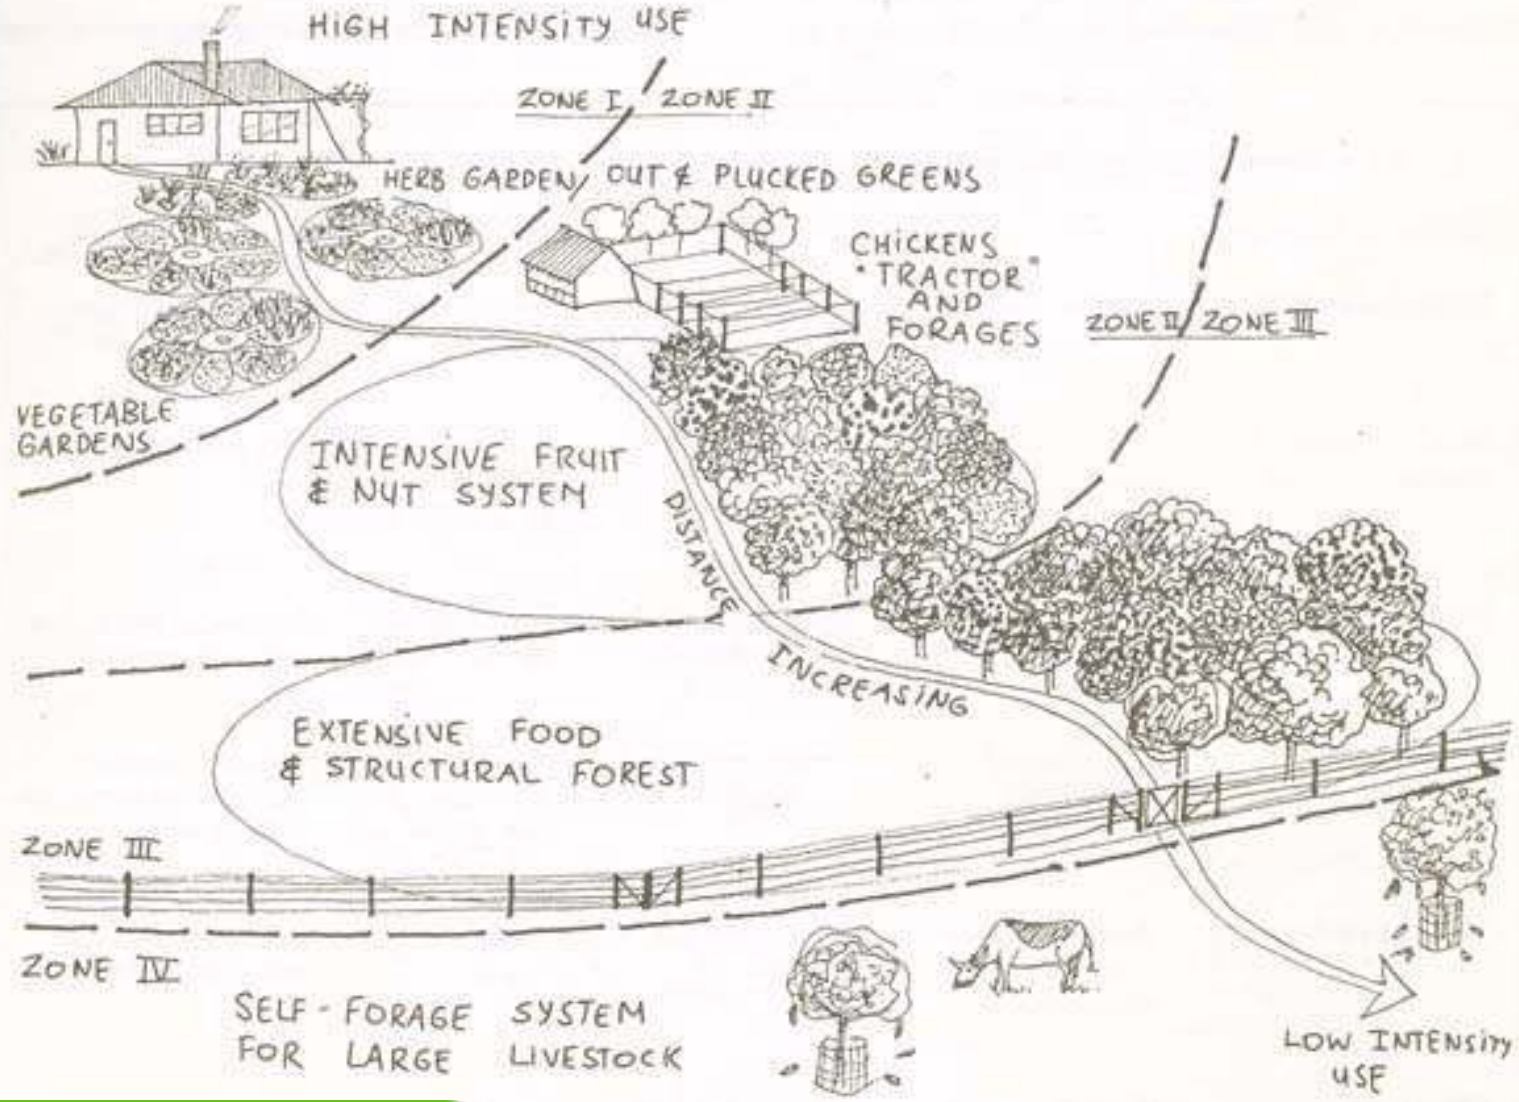 HIGH INTENSITY USE
ZONE I ZONE II
HERB GARDEN OUT & PLUCKED GREENS
CHICKENS
"TRACTOR"
AND
FORAGES
ZONE II ZONE III
VEGETABLE
GARDENS
INTENSIVE FRUIT
& NUT SYSTEM
DISTANCE
INCREASING
EXTENSIVE FOOD
& STRUCTURAL FOREST
ZONE III
ZONE IV
SELF-FORAGE SYSTEM
FOR LARGE LIVESTOCK
LOW INTENSITY
USE